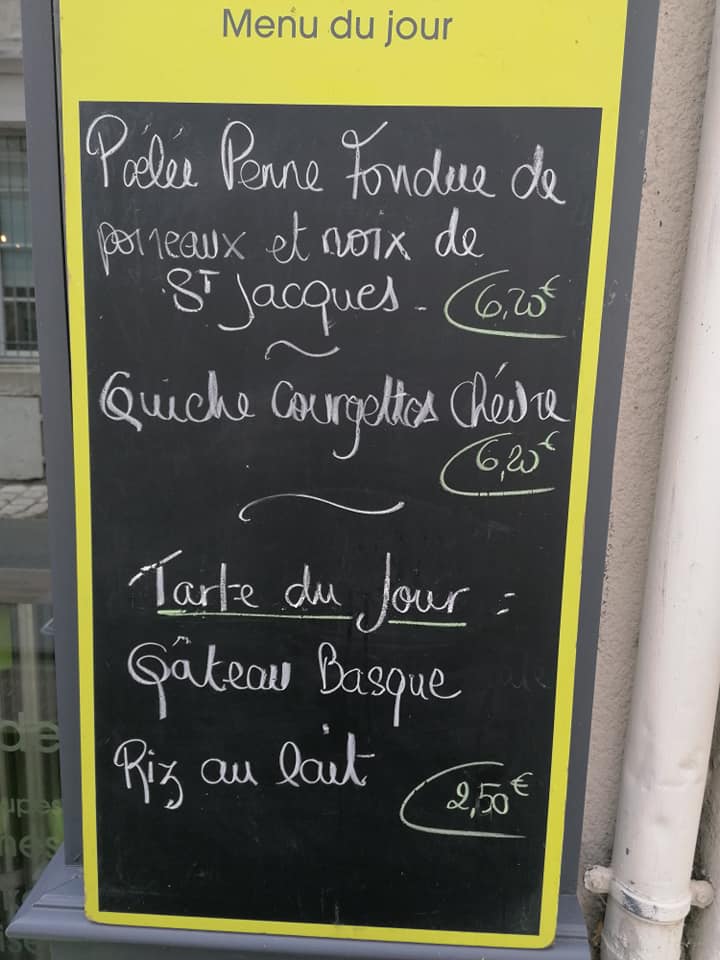 Menu du jour
Poêlée Penne Fondue de
poireaux et noix de
ST Jacques - 6,20€
Quiche Courgettes Chèvre
6,20€
Tarte du Jour :
Gâteau Basque
Riz au lait
2,50€
de
upes
nes